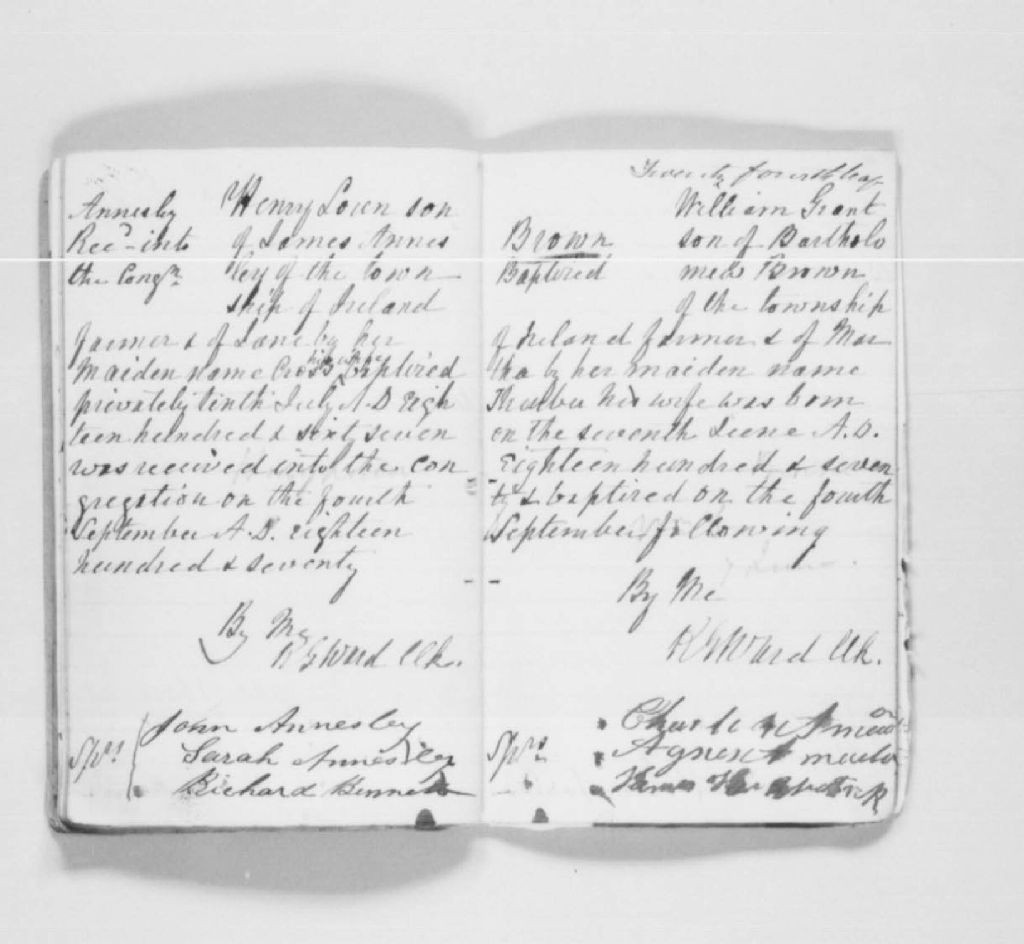 Annesby
Rec^d- into
the Congn.
Henry Loren son
of James Annes
ley of the town
ship of Ireland
farmer & of Jane by her
maiden name Cross his wife Baptized
privately tenth July A.D. Eigh
teen hundred & sixty seven
was received into the con
gregation on the fourth
September A.D. Eighteen
hundred & seventy
By Me
R G Ward Clk.
Sprs
John Annesley
Sarah Annesley
Richard Bennett
Twenty fourth leaf
Brown
Baptized
William Grant
son of Bartholo
mew Brown
of the township
of Ireland farmer & of Mar
tha by her maiden name
his wife was born
on the seventh June A.D.
Eighteen hundred & seven
ty & baptized on the fourth
September following
By Me
R G Ward Clk.
Sprs
Agnes